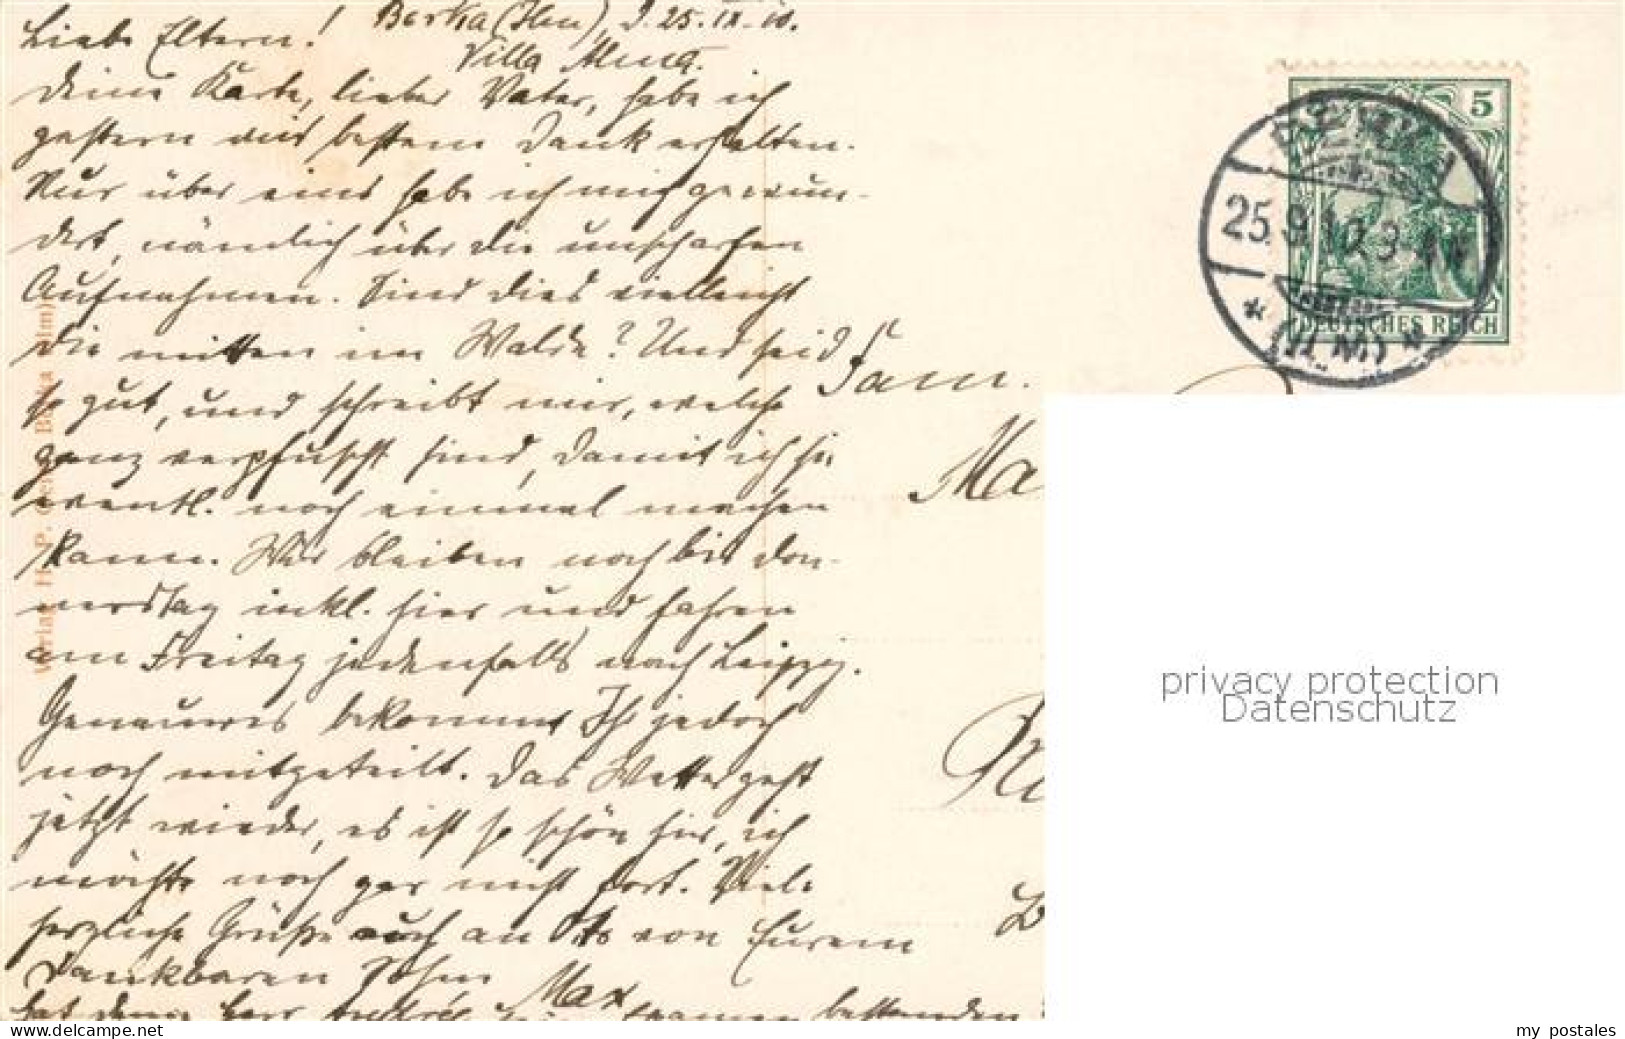 Berka (Ilm), d. 25. IX. 10.
Villa Anna.
Liebe Eltern!
Deine Karte, lieber Vater, habe ich
gestern mit bestem Dank erhalten.
Nur über eins habe ich mich gewun-
dert, nämlich über die unscharfen
Aufnahmen. Sind dies vielleicht
die mitten im Walde? Und seid
so gut, und schreibt mir, welche
ganz verpfuscht sind, damit ich sie
eventl. noch einmal machen
kann. Wir bleiben noch bis Don-
nerstag inkl. hier und fahren
am Freitag jedenfalls nach Leipzig.
Genaueres bekommt Ihr jedoch
noch mitgeteilt. Das Wetter geht
jetzt wieder, es ist so schön hier, ich
möchte noch gar nicht fort. Viele
herzliche Grüße auch an von Eurem
dankbaren Sohn
Max
hat denn Herr bestanden
Fam.
Ma
5
DEUTSCHES REICH
BERKA
25.9.10.3
* (ILM) *
Verlag H. P. Berka (Ilm)
privacy protection
Datenschutz
ak-ansichtskarte.de
my postales